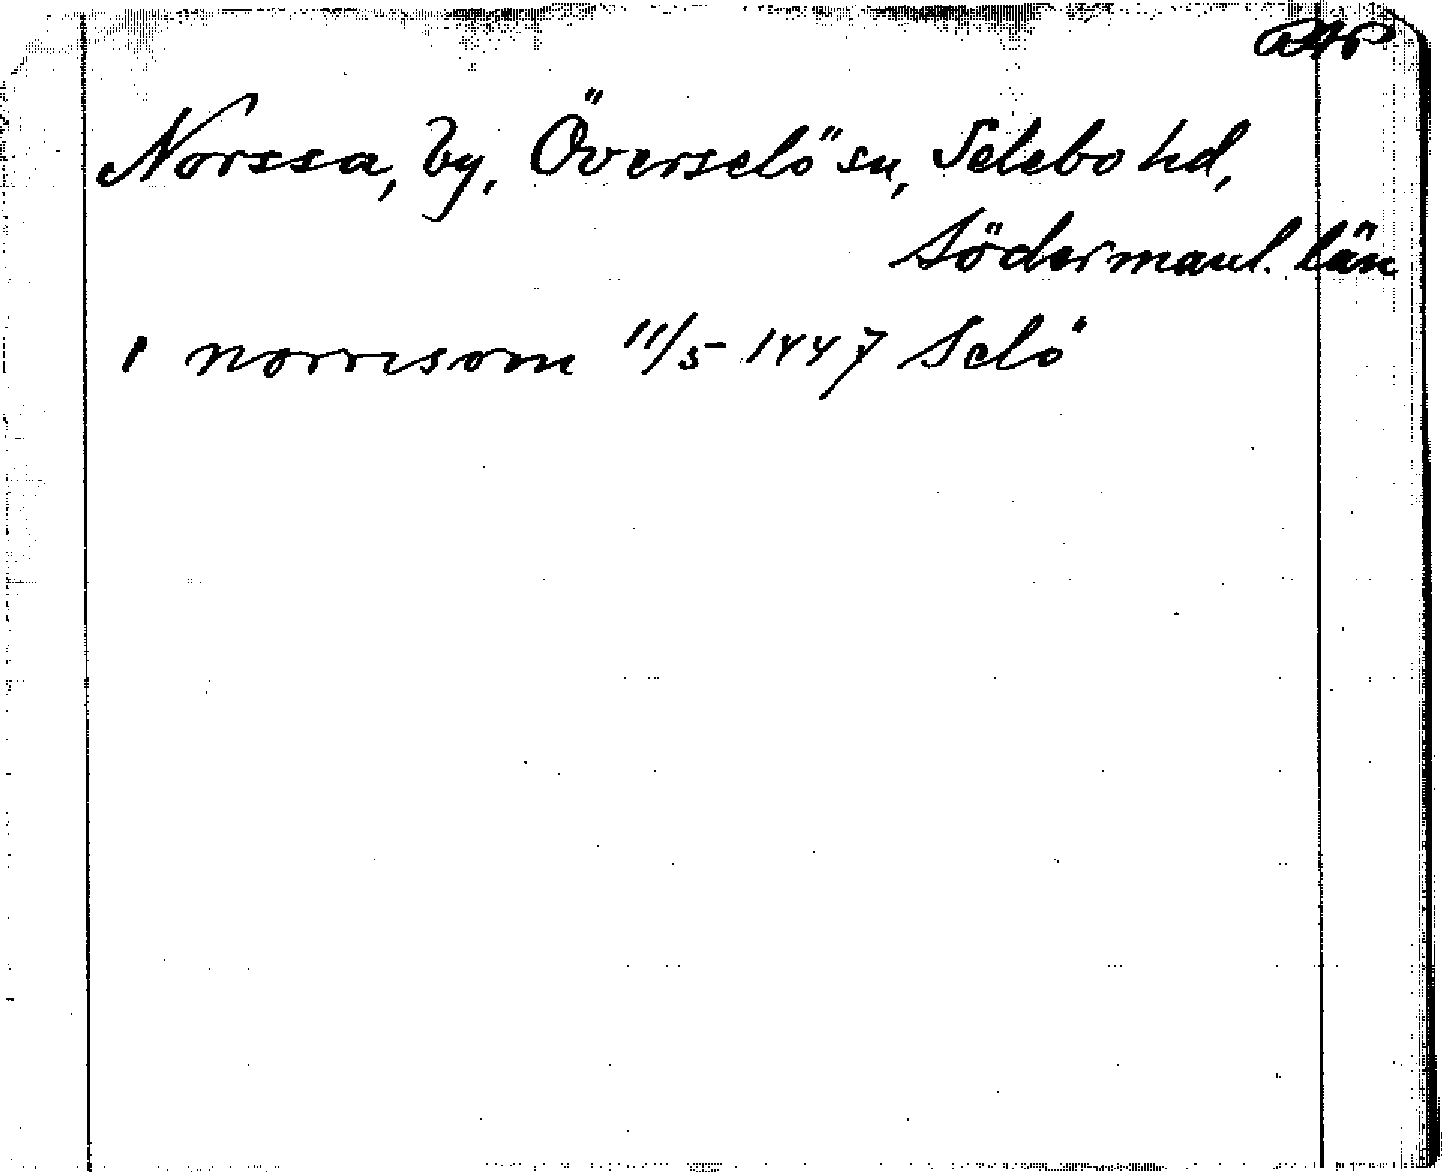 Norssa, by, Överselö sn, Selebo hd,
Södermanl. län
norrisom 11/5 1447 Selö